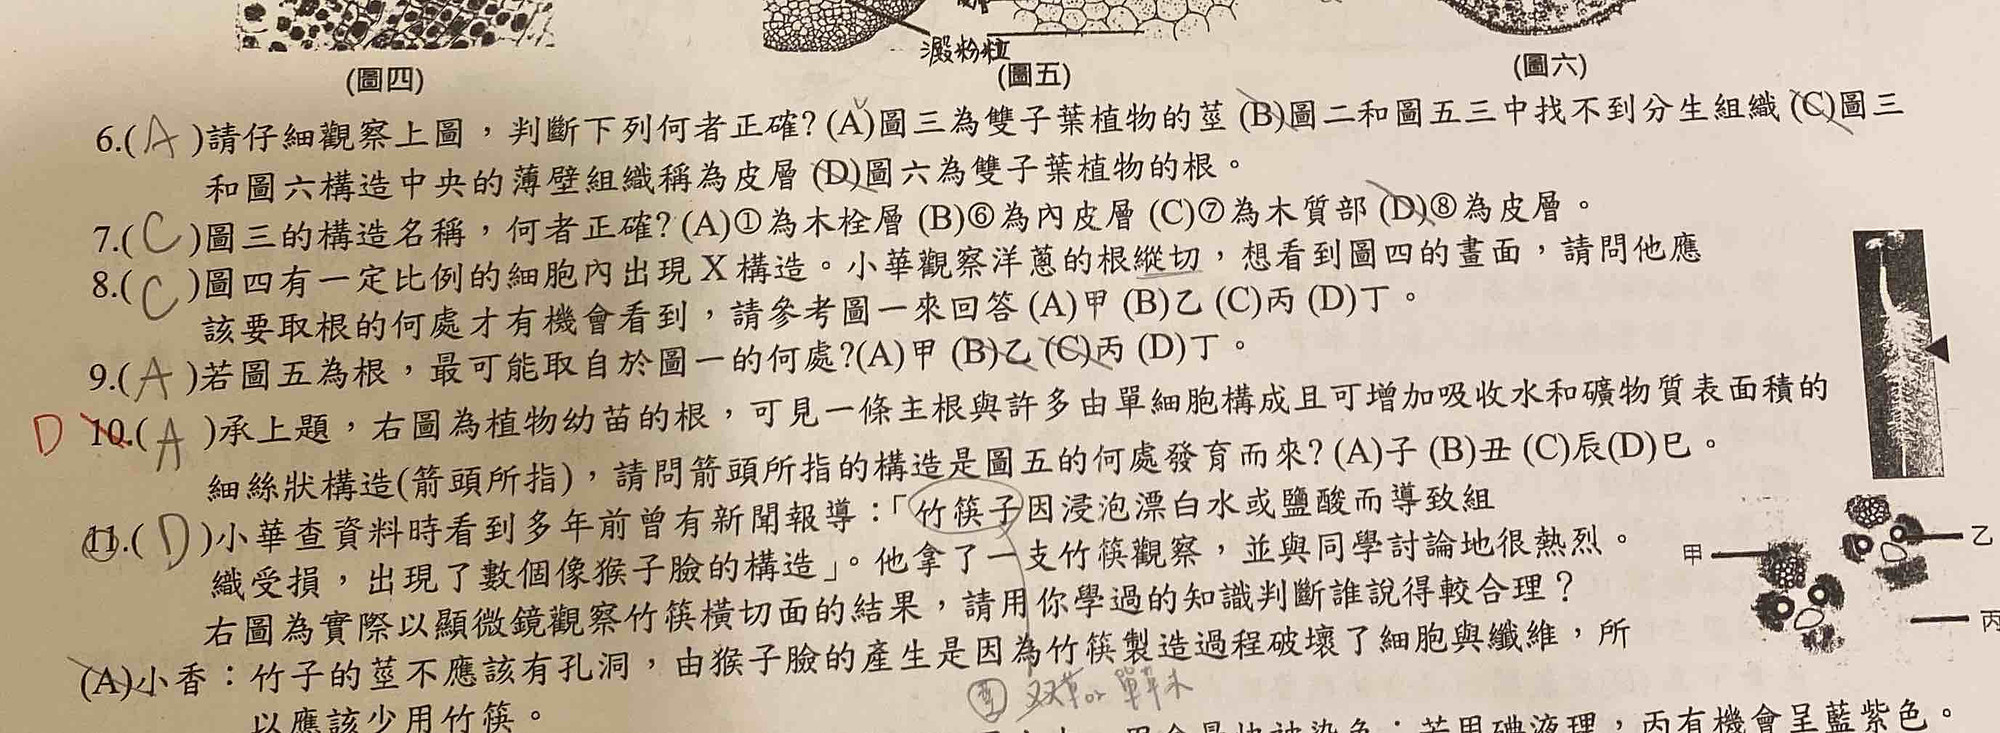 澱粉粒
(圖四)
(圖五)
(圖六)
6.(A)請仔細觀察上圖，判斷下列何者正確? (A)圖三為雙子葉植物的莖 (B)圖二和圖五三中找不到分生組織 (C)圖三
和圖六構造中央的薄壁組織稱為皮層 (D)圖六為雙子葉植物的根。
7.(C)圖三的構造名稱，何者正確? (A)①為木栓層 (B)⑥為內皮層 (C)⑦為木質部 (D)⑧為皮層。
8.(C)圖四有一定比例的細胞內出現 X 構造。小華觀察洋蔥的根縱切，想看到圖四的畫面，請問他應
該要取根的何處才有機會看到，請參考圖一來回答 (A)甲 (B)乙 (C)丙 (D)丁。
9.(A)若圖五為根，最可能取自於圖一的何處?(A)甲 (B)乙 (C)丙 (D)丁。
D 10.(A)承上題，右圖為植物幼苗的根，可見一條主根與許多由單細胞構成且可增加吸收水和礦物質表面積的
細絲狀構造(箭頭所指)，請問箭頭所指的構造是圖五的何處發育而來? (A)子 (B)丑 (C)辰(D)巳。
11.(D)小華查資料時看到多年前曾有新聞報導：「竹筷子因浸泡漂白水或鹽酸而導致組
織受損，出現了數個像猴子臉的構造」。他拿了一支竹筷觀察，並與同學討論地很熱烈。
右圖為實際以顯微鏡觀察竹筷橫切面的結果，請用你學過的知識判斷誰說得較合理？
甲
乙
丙
(A)小香：竹子的莖不應該有孔洞，由猴子臉的產生是因為竹筷製造過程破壞了細胞與纖維，所
以應該少用竹筷。
被染色；若用碘液理，丙有機會呈藍紫色。